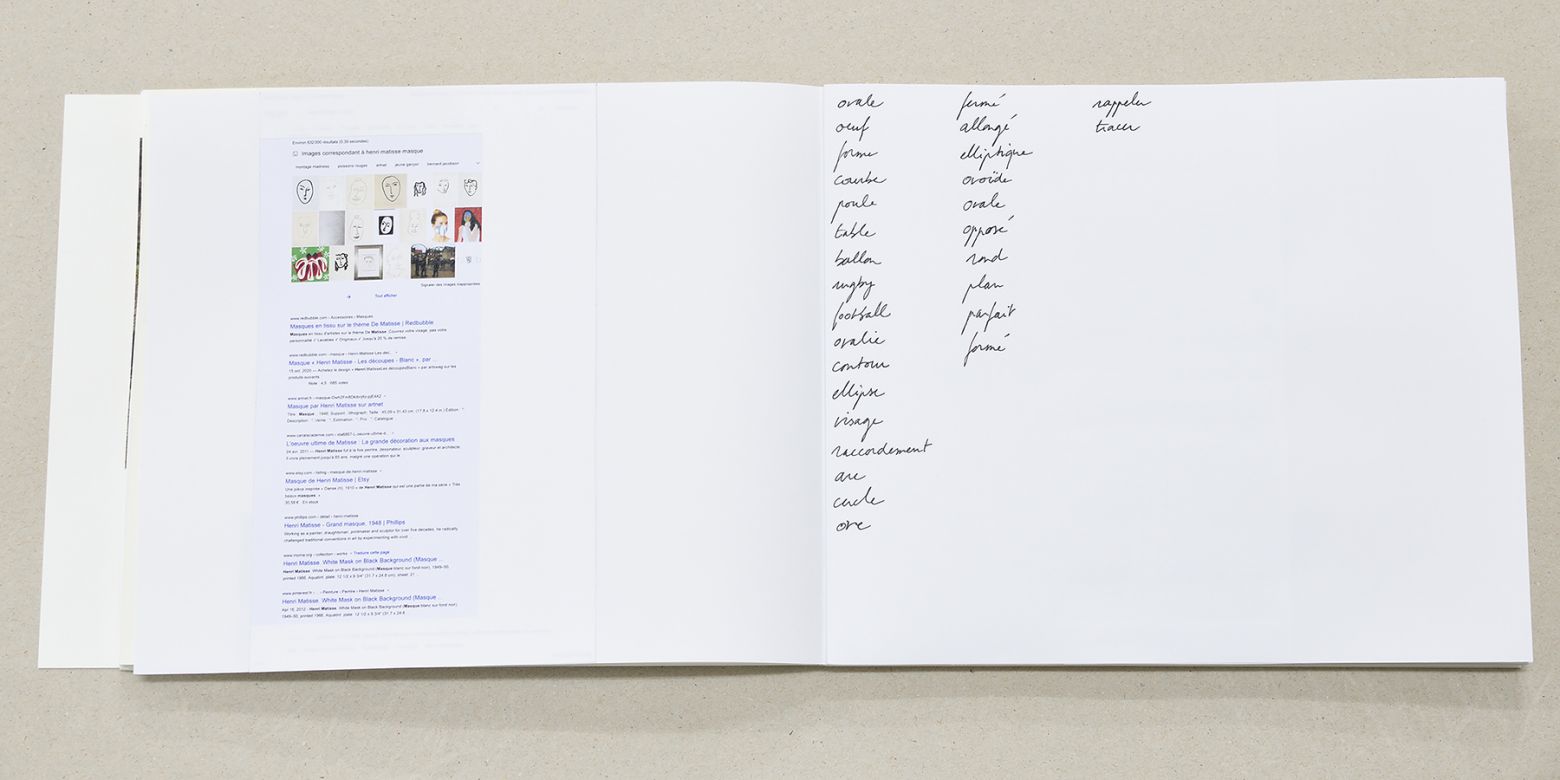 Environ 632 000 résultats (0,39 secondes)
Images correspondant à henri matisse masque
montage madness poissons rouges artnet jeune garçon bernard jacobson
Signaler des images inappropriées
Tout afficher
www.redbubble.com › Accessoires › Masques
Masques en tissu sur le thème De Matisse | Redbubble
Masques en tissu d'artistes sur le thème De Matisse. Couvrez votre visage, pas votre
personnalité ✓ Lavables ✓ Originaux ✓ Jusqu'à 20 % de remise.
www.redbubble.com › masque › Henri-Matisse-Les-dec...
Masque « Henri Matisse - Les découpes - Blanc », par ...
15 oct. 2020 — Achetez le design « HenriMatisseLes découpesBlanc » par artswag sur les
produits suivants :
Masque par Henri Matisse sur artnet
L'oeuvre ultime de Matisse : La grande décoration aux masques
04 avr. 2011 — Henri Matisse fut à la fois peintre, dessinateur, sculpteur, graveur et architecte.
Il vivra pleinement jusqu'à 85 ans, malgré une opération qui le ...
www.etsy.com › listing › masque-de-henri-matisse
Masque de Henri Matisse | Etsy
beaux masques. »
30,58 € · En stock
www.phillips.com › detail › henri-matisse
Henri Matisse - Grand masque, 1948 | Phillips
Working as a painter, draughtsman, printmaker and sculptor for over five decades, he radically
challenged traditional conventions in art by experimenting with vivid ...
www.moma.org › collection › works › Traduire cette page
Henri Matisse. White Mask on Black Background (Masque ...
Henri Matisse. White Mask on Black Background (Masque blanc sur fond noir). 1949–50,
printed 1966. Aquatint. plate: 12 1/2 x 9 3/4" (31.7 x 24.8 cm); sheet: 2?...
www.pinterest.fr › ... › Peinture › Peintre › Henri Matisse
Henri Matisse. White Mask on Black Background (Masque ...
Apr 16, 2012 - Henri Matisse. White Mask on Black Background (Masque blanc sur fond noir).
1949–50, printed 1966. Aquatint. plate: 12 1/2 x 9 3/4" (31.7 x 24.8
ovale
oeuf
forme
courbe
poule
table
ballon
rugby
football
ovalie
contour
ellipse
visage
raccordement
arc
cercle
ove
fermé
allongé
elliptique
ovoïde
ovale
opposé
rond
plan
parfait
formé
rappeler
tracer